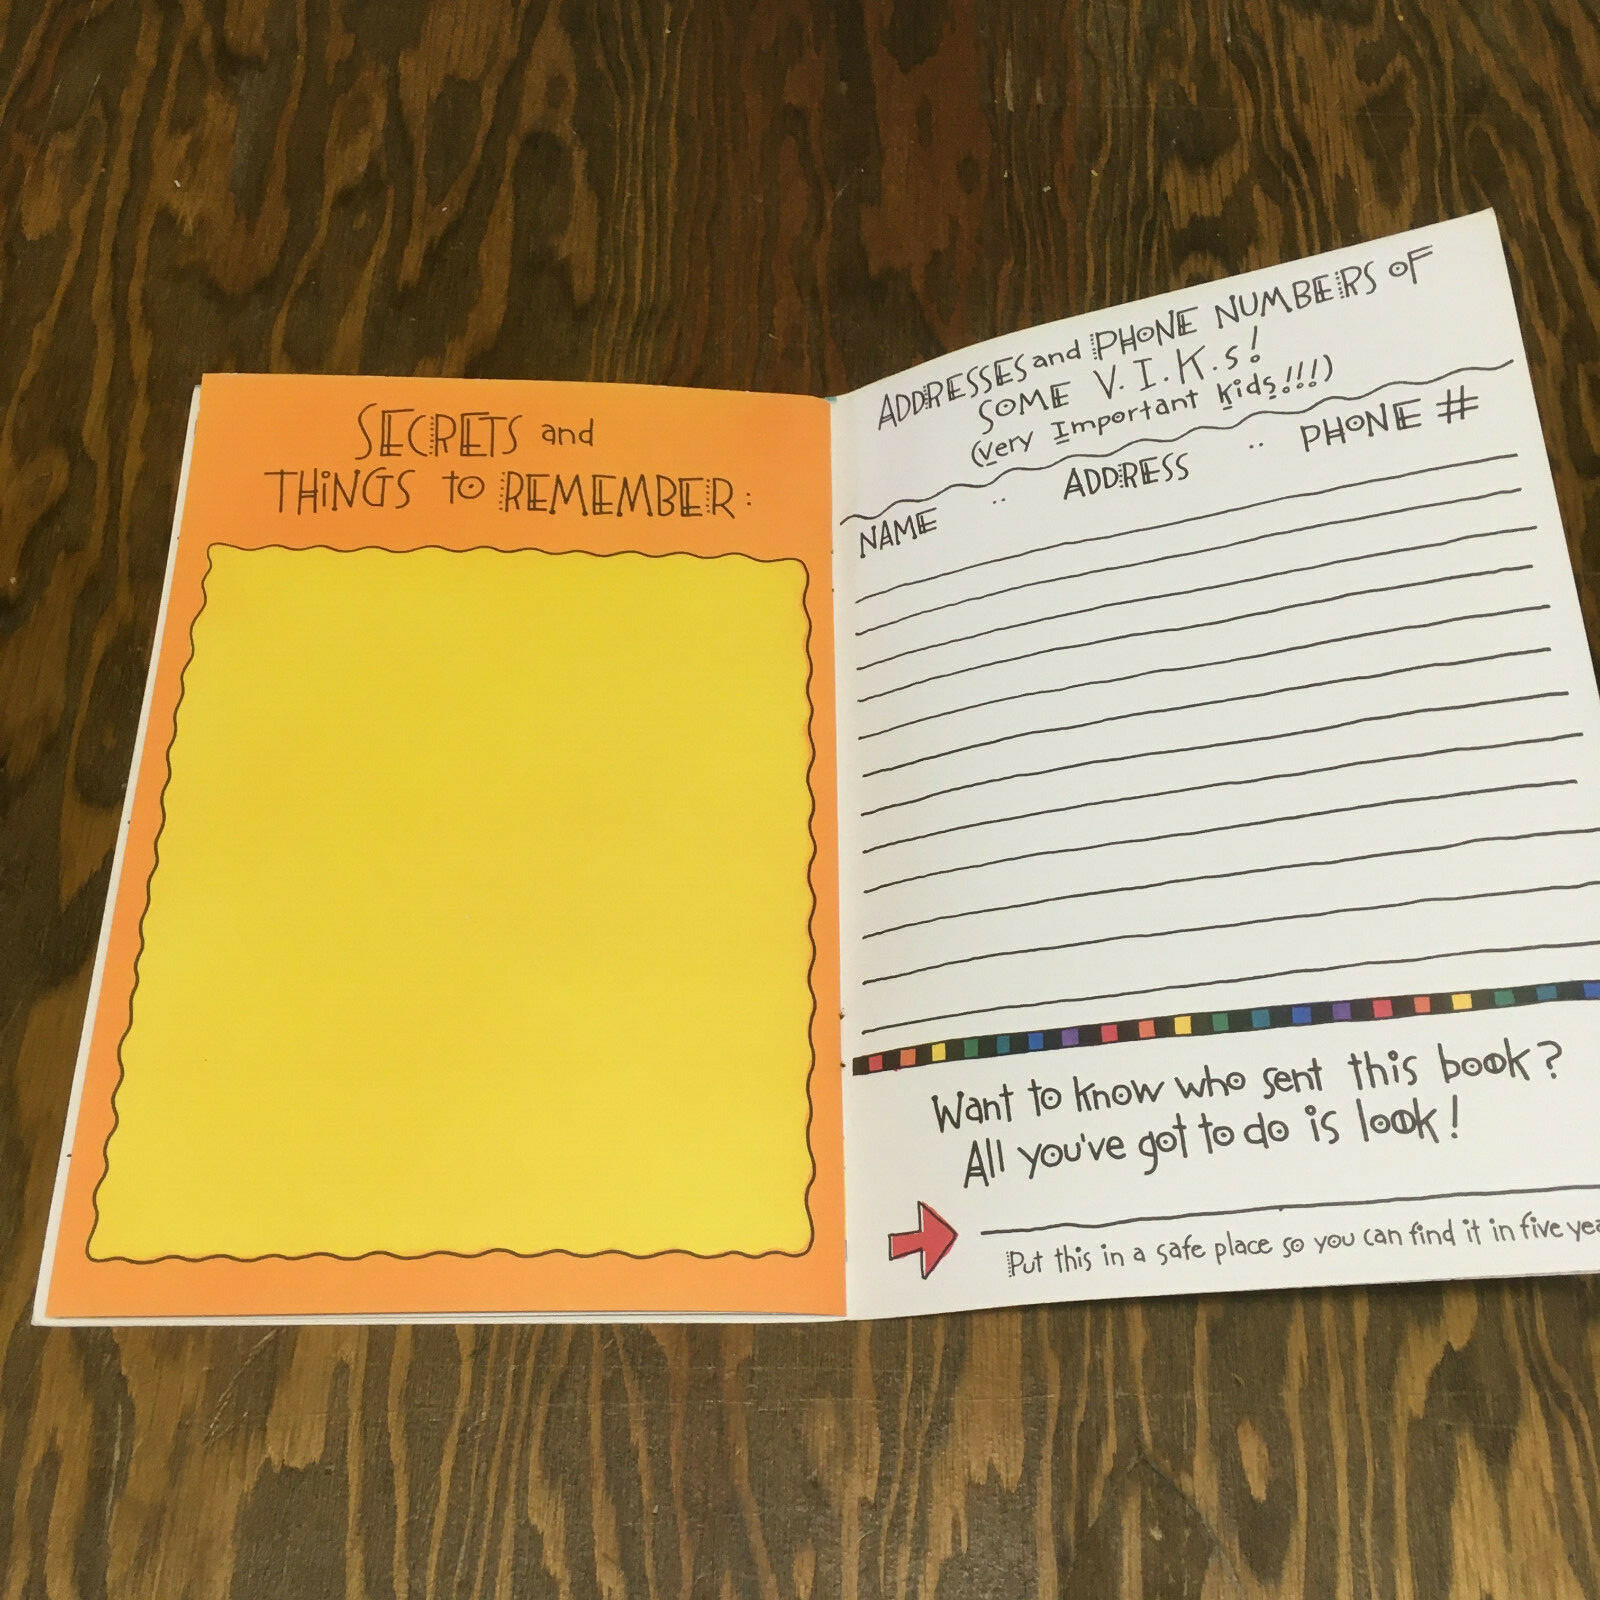 SECRETS and
THINGS to REMEMBER:
ADDRESSES and PHONE NUMBERS OF
SOME V.I.K.s!
(Very Important Kids!!!)
NAME .. ADDRESS .. PHONE #
Want to know who sent this book?
All you've got to do is look!
Put this in a safe place so you can find it in five